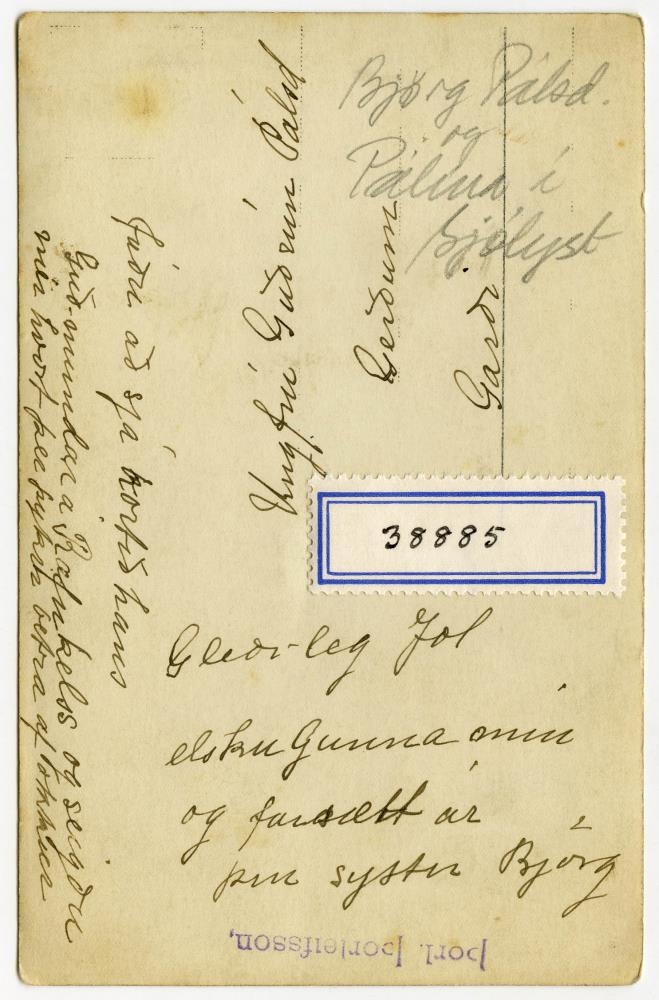 Björg Pálsd.
og
Pálína í
Sjólyst
Ungfrú Guðrún Pálsd
Gerðum
Garði
38885
Gleðileg Jól
elsku Gunna mín
og farsælt ár
þín systir Björg
fáðu að sjá kortið hans
Guðmundar a Rafnkelss og seigðu
mér hvort þér þykir betra af okkur
Þorl. Þorleifsson,